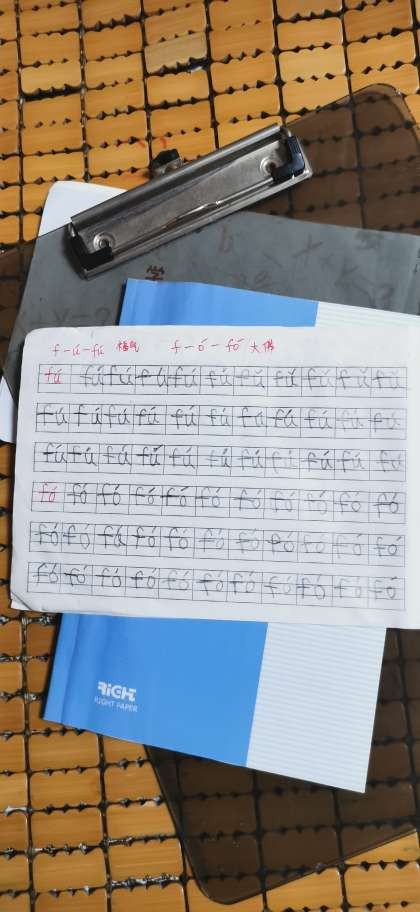 f-ú-fú 福气 f-ó-fó 大佛
fú fú fú fú fú fú fú fú fú fú fú
fú fú fú fú fú fú fú fú fú fú fú
fú fú fú fú fú fú fú fú fú fú fú
fó fó fó fó fó fó fó fó fó fó fó
fó fó fó fó fó fó fó fó fó fó fó
fó fó fó fó fó fó fó fó fó fó fó
RIGHT
RIGHT PAPER